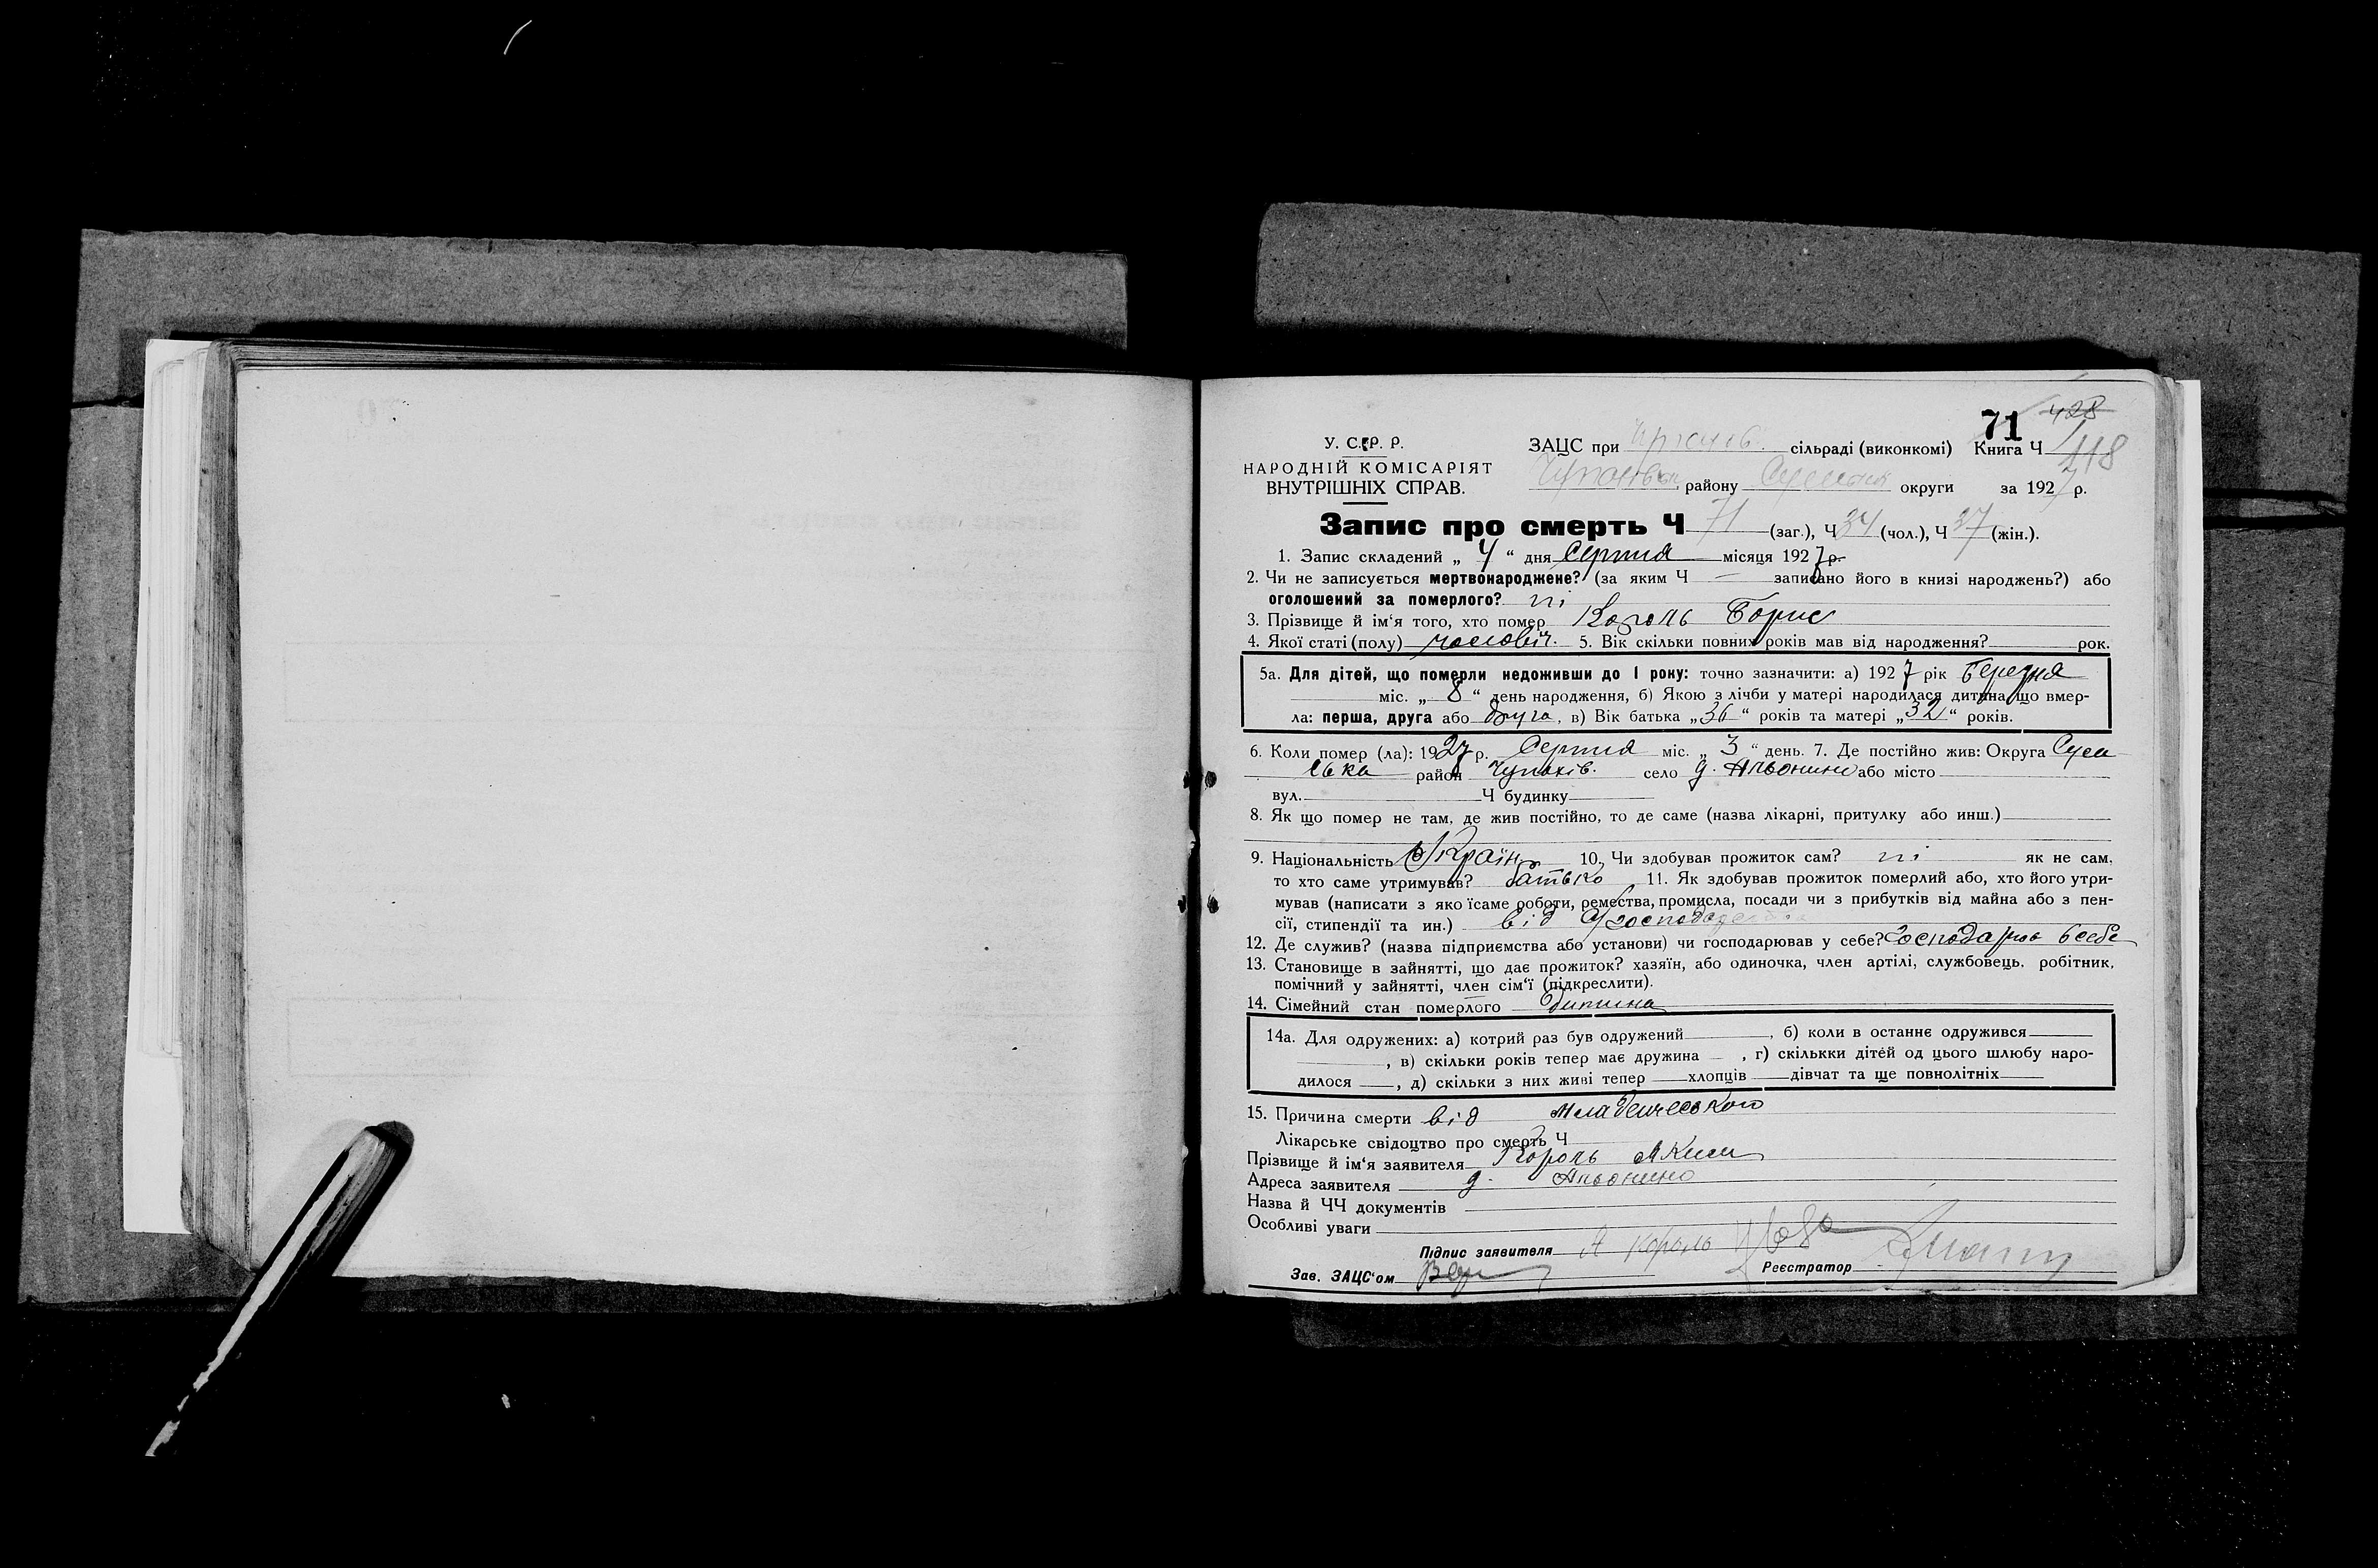 71 428
118
У. С. Р. Р.
НАРОДНІЙ КОМІСАРІЯТ
ВНУТРІШНІХ СПРАВ.
ЗАЦС при сільраді (виконкомі) Книга Ч
району округи за 1927 р.
Запис про смерть Ч 71 (заг.), Ч 34 (чол.), Ч 37 (жін.).
1. Запис складений „ 4 “ дня Серпня місяця 1927 р.
2. Чи не записується мертвонароджене? (за яким Ч — записано його в книзі народжень?) або
оголошений за померлого? ні
3. Прізвище й ім‘я того, хто помер Король Борис
4. Якої статі (полу) чоловіч. 5. Вік скільки повних років мав від народження? рок.
5а. Для дітей, що померли недоживши до 1 року: точно зазначити: а) 1927 рік Березня
міс. „ 8 “ день народження, б) Якою з лічби у матері народилася дитина, що вмер-
ла: перша, друга або друга, в) Вік батька „36“ років та матері „32“ років.
6. Коли помер (ла): 1927 р. Серпня міс. „ 3 “ день. 7. Де постійно жив: Округа Сум
ська район Чупахів. село д. Альонино або місто
вул. Ч будинку
8. Як що помер не там, де жив постійно, то де саме (назва лікарні, притулку або инш.)
9. Національність Україн. 10. Чи здобував прожиток сам? ні як не сам,
то хто саме утримував? батько 11. Як здобував прожиток померлий або, хто його утри-
мував (написати з яко їсаме роботи, ремества, промисла, посади чи з прибутків від майна або з пен-
сії, стипендії та ин.) від
12. Де служив? (назва підприємства або установи) чи господарював у себе? в себе
13. Становище в зайнятті, що дає прожиток? хазяїн, або одиночка, член артілі, службовець, робітник,
помічний у зайнятті, член сім‘ї (підкреслити).
14. Сімейний стан померлого дитина
14а. Для одружених: а) котрий раз був одружений , б) коли в останнє одружився
, в) скільки років тепер має дружина — , г) скількки дітей од цього шлюбу наро-
дилося , д) скільки з них живі тепер хлопців дівчат та ще повнолітніх
15. Причина смерти від младенчеського
Лікарське свідоцтво про смерть Ч
Прізвище й ім‘я заявителя Король Аким
Адреса заявителя д. Альонино
Назва й ЧЧ документів
Особливі уваги
Підпис заявителя А Король
Зав. ЗАЦС‘ом Реєстратор